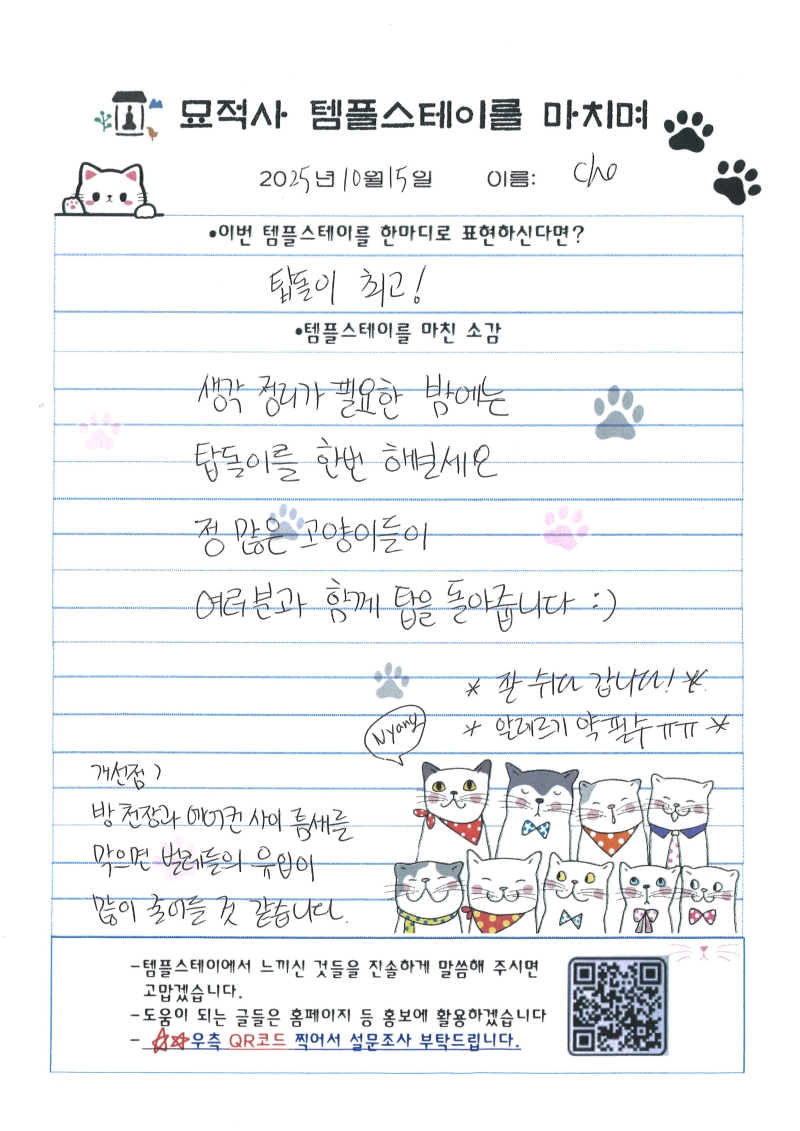 묘적사 템플스테이를 마치며
2025년 10월 15일 이름: Cho
•이번 템플스테이를 한마디로 표현하신다면?
탑돌이 최고!
•템플스테이를 마친 소감
생각 정리가 필요한 밤에는
탑돌이를 한번 해보세요
정 많은 고양이들이
여러분과 함께 탑을 돌아줍니다 :)
* 잘 쉬다 갑니다! *
* 알레르기 약 필수 ㅠㅠ *
Nyang
개선점)
방 천장과 에어컨 사이 틈새를
막으면 벌레들의 유입이
많이 줄어들 것 같습니다.
-템플스테이에서 느끼신 것들을 진솔하게 말씀해 주시면
고맙겠습니다.
-도움이 되는 글들은 홈페이지 등 홍보에 활용하겠습니다
- ☆☆우측 QR코드 찍어서 설문조사 부탁드립니다.